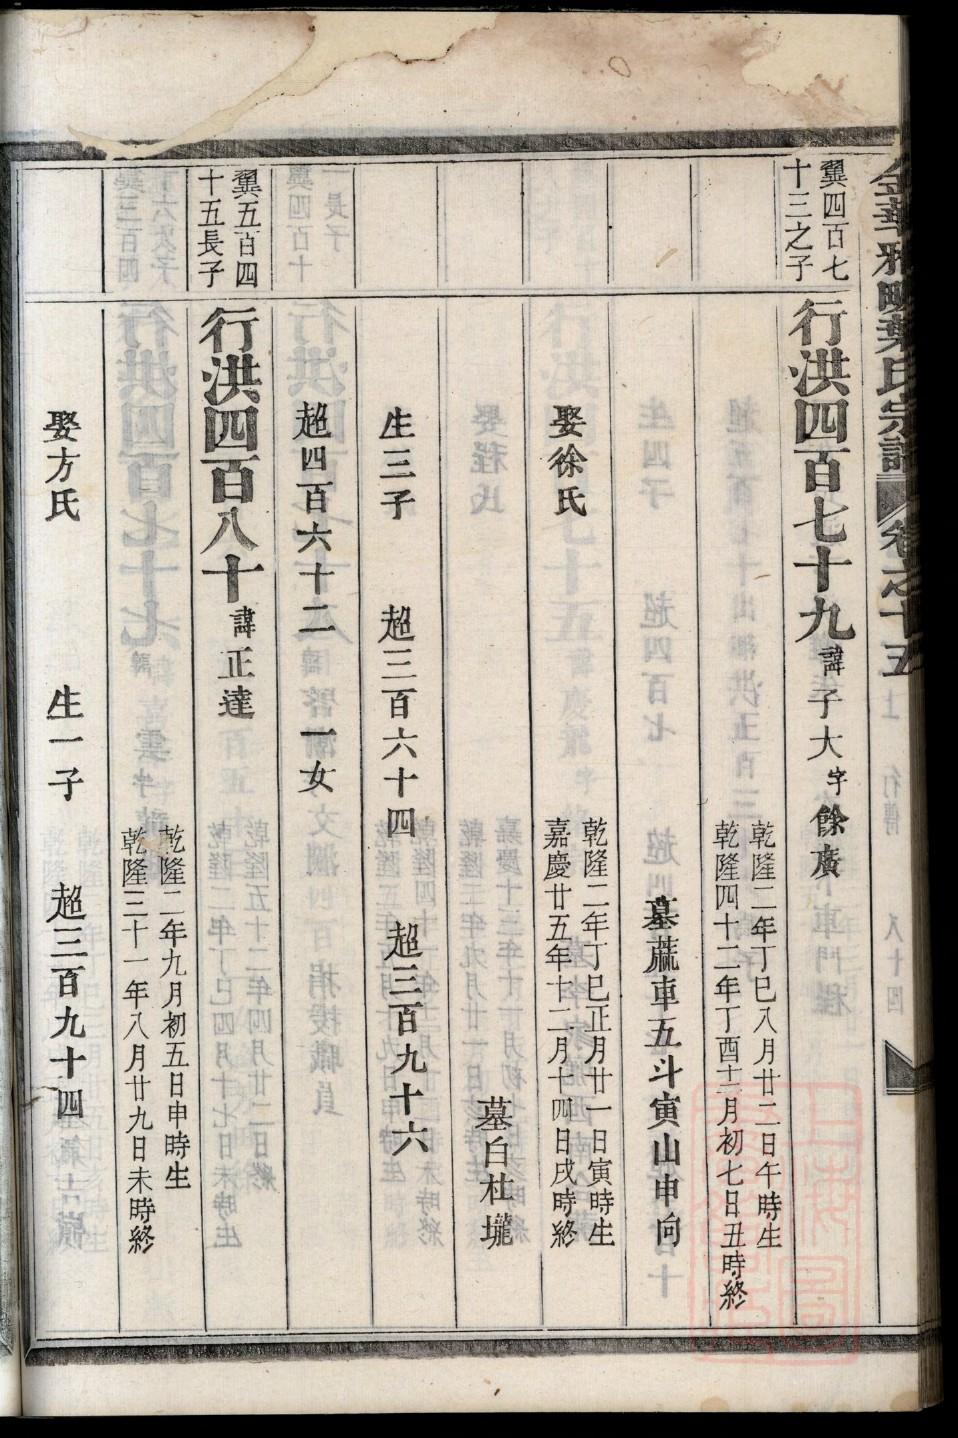 金華雅畈葉氏宗譜 卷之十五
翼四百七
十三之子
行洪四百七十九 諱子大 字餘廣
乾隆二年丁巳八月廿二日午時生
乾隆四十二年丁酉十二月初七日丑時終
墓蓏車五斗寅山申向
娶徐氏
乾隆二年丁巳正月廿一日寅時生
嘉慶廿五年十二月十四日戌時終
墓白杜壠
生三子 超三百六十四 超三百九十六
超四百六十二 一女
翼五百四
十五長子
行洪四百八十 諱正達
乾隆二年九月初五日申時生
乾隆三十一年八月廿九日未時終
娶方氏 生一子 超三百九十四